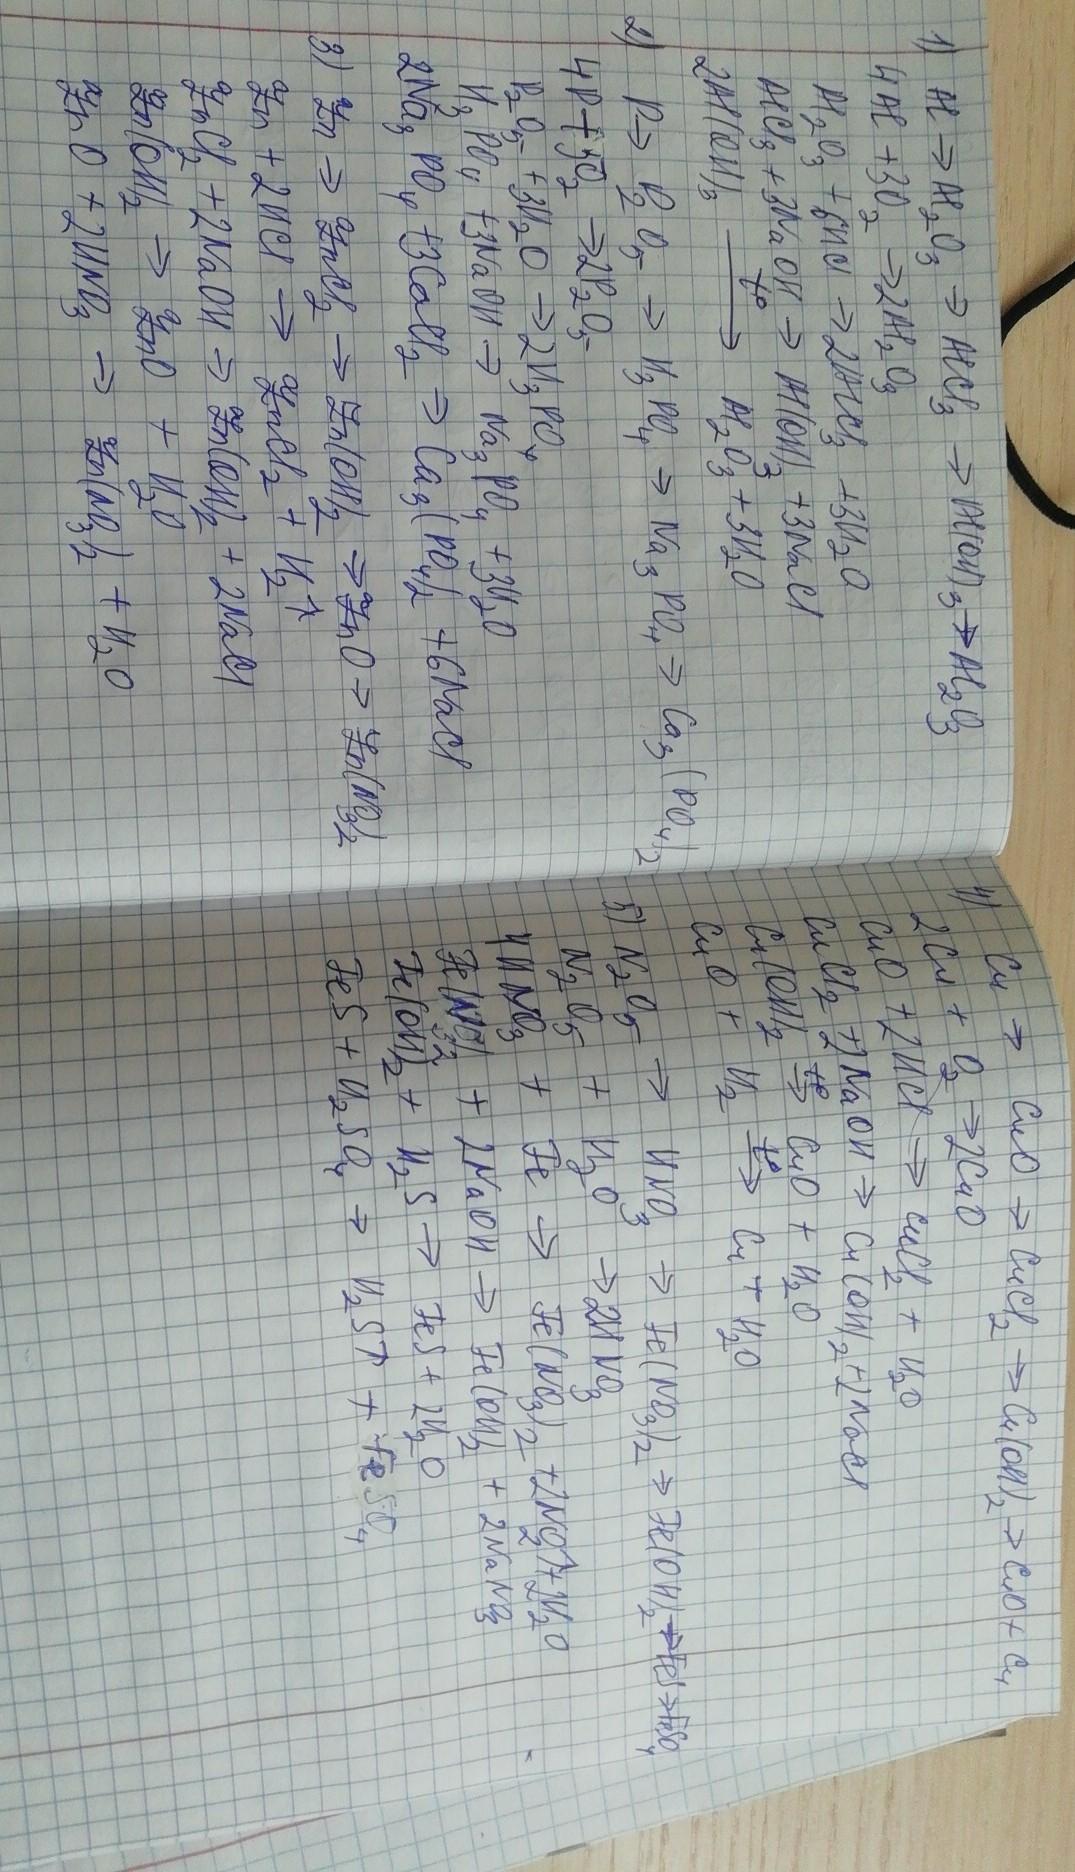 1) Al → Al₂O₃ → AlCl₃ → Al(OH)₃ → Al₂O₃
4Al + 3O₂ → 2Al₂O₃
Al₂O₃ + 6HCl → 2AlCl₃ + 3H₂O
AlCl₃ + 3NaOH → Al(OH)₃ + 3NaCl
2Al(OH)₃ —t°→ Al₂O₃ + 3H₂O
2) P → P₂O₅ → H₃PO₄ → Na₃PO₄ → Ca₃(PO₄)₂
4P + 5O₂ → 2P₂O₅
P₂O₅ + 3H₂O → 2H₃PO₄
H₃PO₄ + 3NaOH → Na₃PO₄ + 3H₂O
2Na₃PO₄ + 3CaCl₂ → Ca₃(PO₄)₂ + 6NaCl
3) Zn → ZnCl₂ → Zn(OH)₂ → ZnO → Zn(NO₃)₂
Zn + 2HCl → ZnCl₂ + H₂↑
ZnCl₂ + 2NaOH → Zn(OH)₂ + 2NaCl
Zn(OH)₂ → ZnO + H₂O
ZnO + 2HNO₃ → Zn(NO₃)₂ + H₂O
4) Cu → CuO → CuCl₂ → Cu(OH)₂ → CuO + Cu
2Cu + O₂ → 2CuO
CuO + 2HCl → CuCl₂ + H₂O
CuCl₂ + 2NaOH → Cu(OH)₂ + 2NaCl
Cu(OH)₂ —t°→ CuO + H₂O
CuO + H₂ —t°→ Cu + H₂O
5) N₂O₅ → HNO₃ → Fe(NO₃)₂ → Fe(OH)₂ → FeS → FeSO₄
N₂O₅ + H₂O → 2HNO₃
4HNO₃ + Fe → Fe(NO₃)₂ + 2NO₂↑ + 2H₂O
Fe(NO₃)₂ + 2NaOH → Fe(OH)₂ + 2NaNO₃
Fe(OH)₂ + H₂S → FeS + 2H₂O
FeS + H₂SO₄ → H₂S↑ + FeSO₄